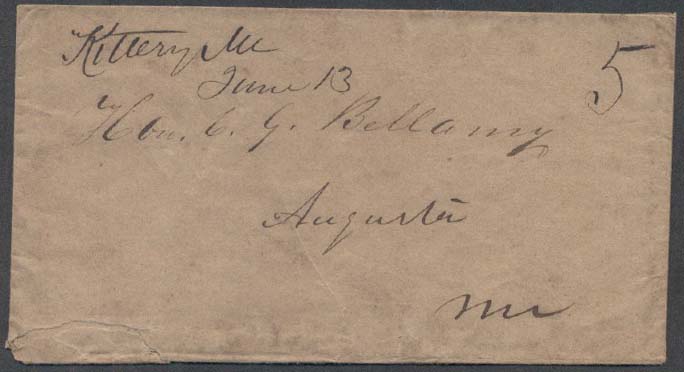 Kittery Me
5
June 13
Hon. C. G. Bellamy
Augusta
Me